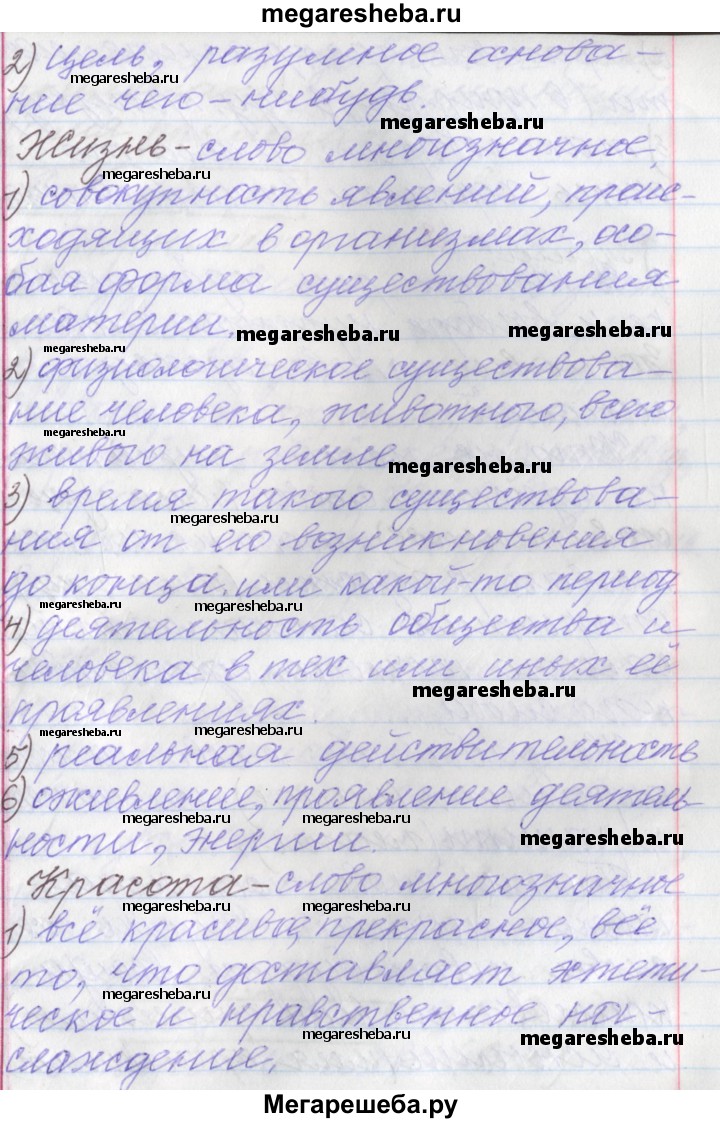 megaresheba.ru
2) цель, разумное основа-
megaresheba.ru
ние чего-нибудь.
megaresheba.ru
Жизнь - слово многозначное
megaresheba.ru
1) совокупность явлений, проис-
ходящих в организмах, осо-
бая форма существования
материи.
megaresheba.ru
megaresheba.ru
megaresheba.ru
2) физиологическое существова-
ние человека, животного, всего
megaresheba.ru
живого на земле.
megaresheba.ru
3) время такого существова-
megaresheba.ru
ния от его возникновения
до конца, или какой-то период.
megaresheba.ru
megaresheba.ru
4) деятельность общества и
человека в тех или иных её
megaresheba.ru
проявлениях.
megaresheba.ru
megaresheba.ru
5) реальная действительность
6) оживление, проявление деятель
megaresheba.ru
megaresheba.ru
ности, энергии.
megaresheba.ru
Красота - слово многозначное
megaresheba.ru
megaresheba.ru
1) всё красивое, прекрасное, всё
то, что доставляет эстети-
megaresheba.ru
ческое и нравственное на-
megaresheba.ru
megaresheba.ru
слаждение.
Мегарешеба.ру